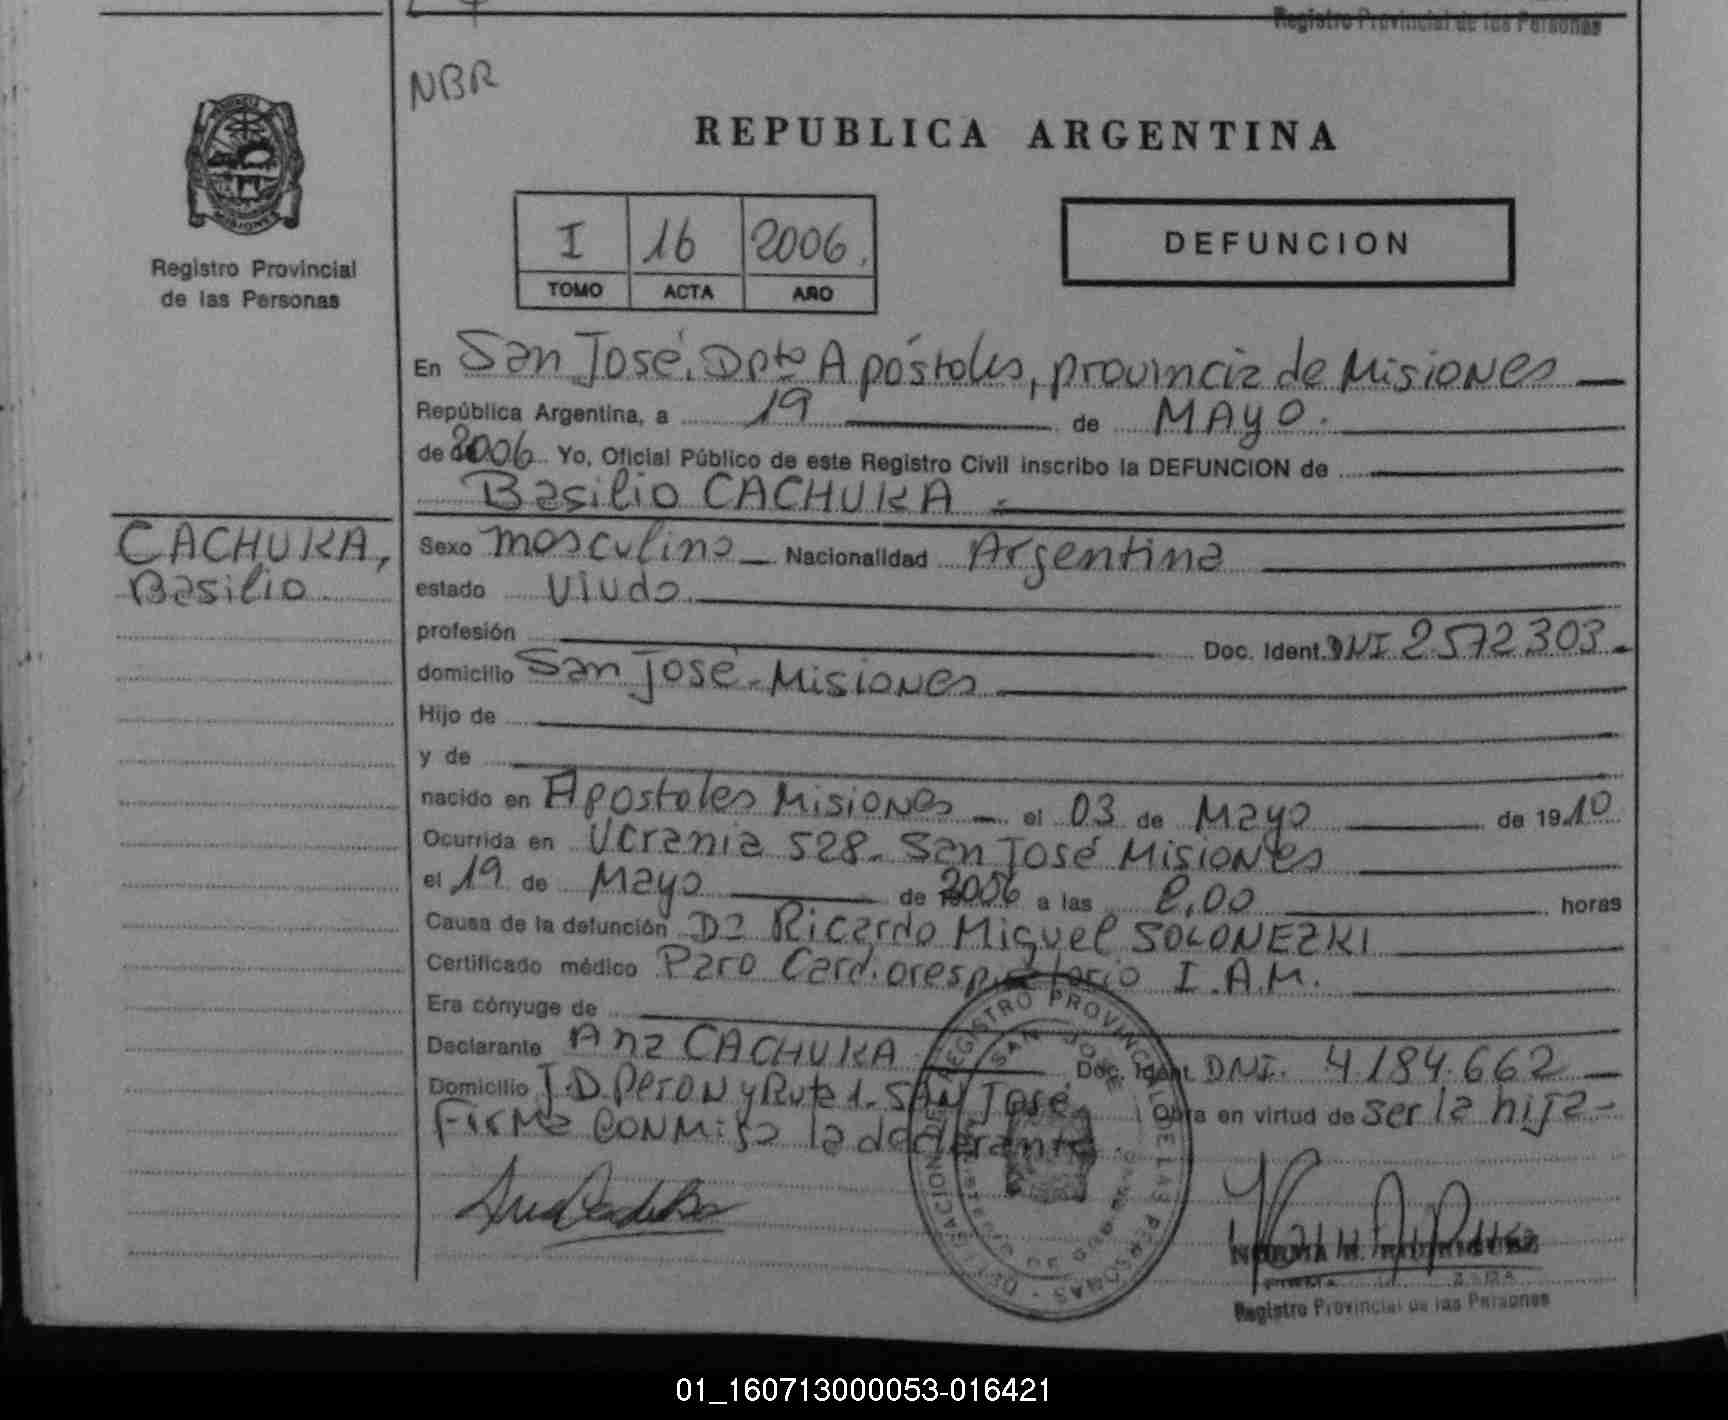 Registro Provincial de las Personas
NBR
REPUBLICA ARGENTINA
Registro Provincial
de las Personas
I 16 2006.
TOMO ACTA AÑO
DEFUNCION
En San José, Dpto Apóstoles, provincia de Misiones
República Argentina, a 19 de MAYO.
de 2006 Yo, Oficial Público de este Registro Civil inscribo la DEFUNCION de
Basilio CACHUKA
CACHUKA,
Basilio
Sexo masculino Nacionalidad Argentina
estado Viudo
profesión Doc. Ident. DNI 2572.303
domicilio San José - Misiones
Hijo de
y de
nacido en Apostoles Misiones el 03 de Mayo de 1910
Ocurrida en Ucrania 528 - San José Misiones
el 19 de Mayo de 2006 a las 8,00 horas
Causa de la defunción Dr Ricardo Miguel SOLONEZKI
Certificado médico Paro Cardiorespiratorio I.A.M.
Era cónyuge de
Declarante Ana CACHUKA Doc. Ident. DNI. 4.184.662
Domicilio J.D. PERON y Ruta 1 - SAN José Obra en virtud de ser la hija -
Firma conmigo la declarante.
REGISTRO PROVINCIAL DE LAS PERSONAS
SAN JOSE
NORMA H. RODRIGUEZ
Registro Provincial de las Personas
01_160713000053-016421